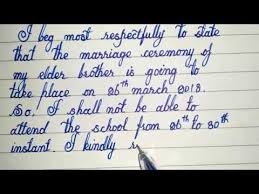 I beg most respectfully to state
that the marriage ceremony of
my elder brother is going to
take place on 26th march 2018.
So, I shall not be able to
attend the school from 26th to 30th
instant. I kindly